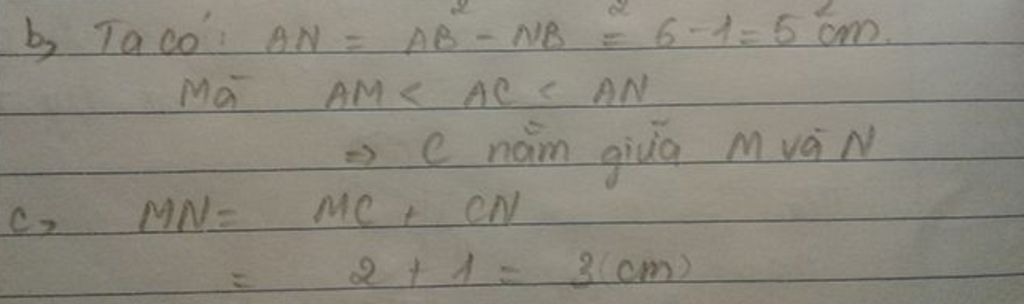 b, Ta có: AN = AB - NB = 6 - 1 = 5 cm.
Mà AM < AC < AN
⇒ C nằm giữa M và N
c, MN = MC + CN
= 2 + 1 = 3 (cm)